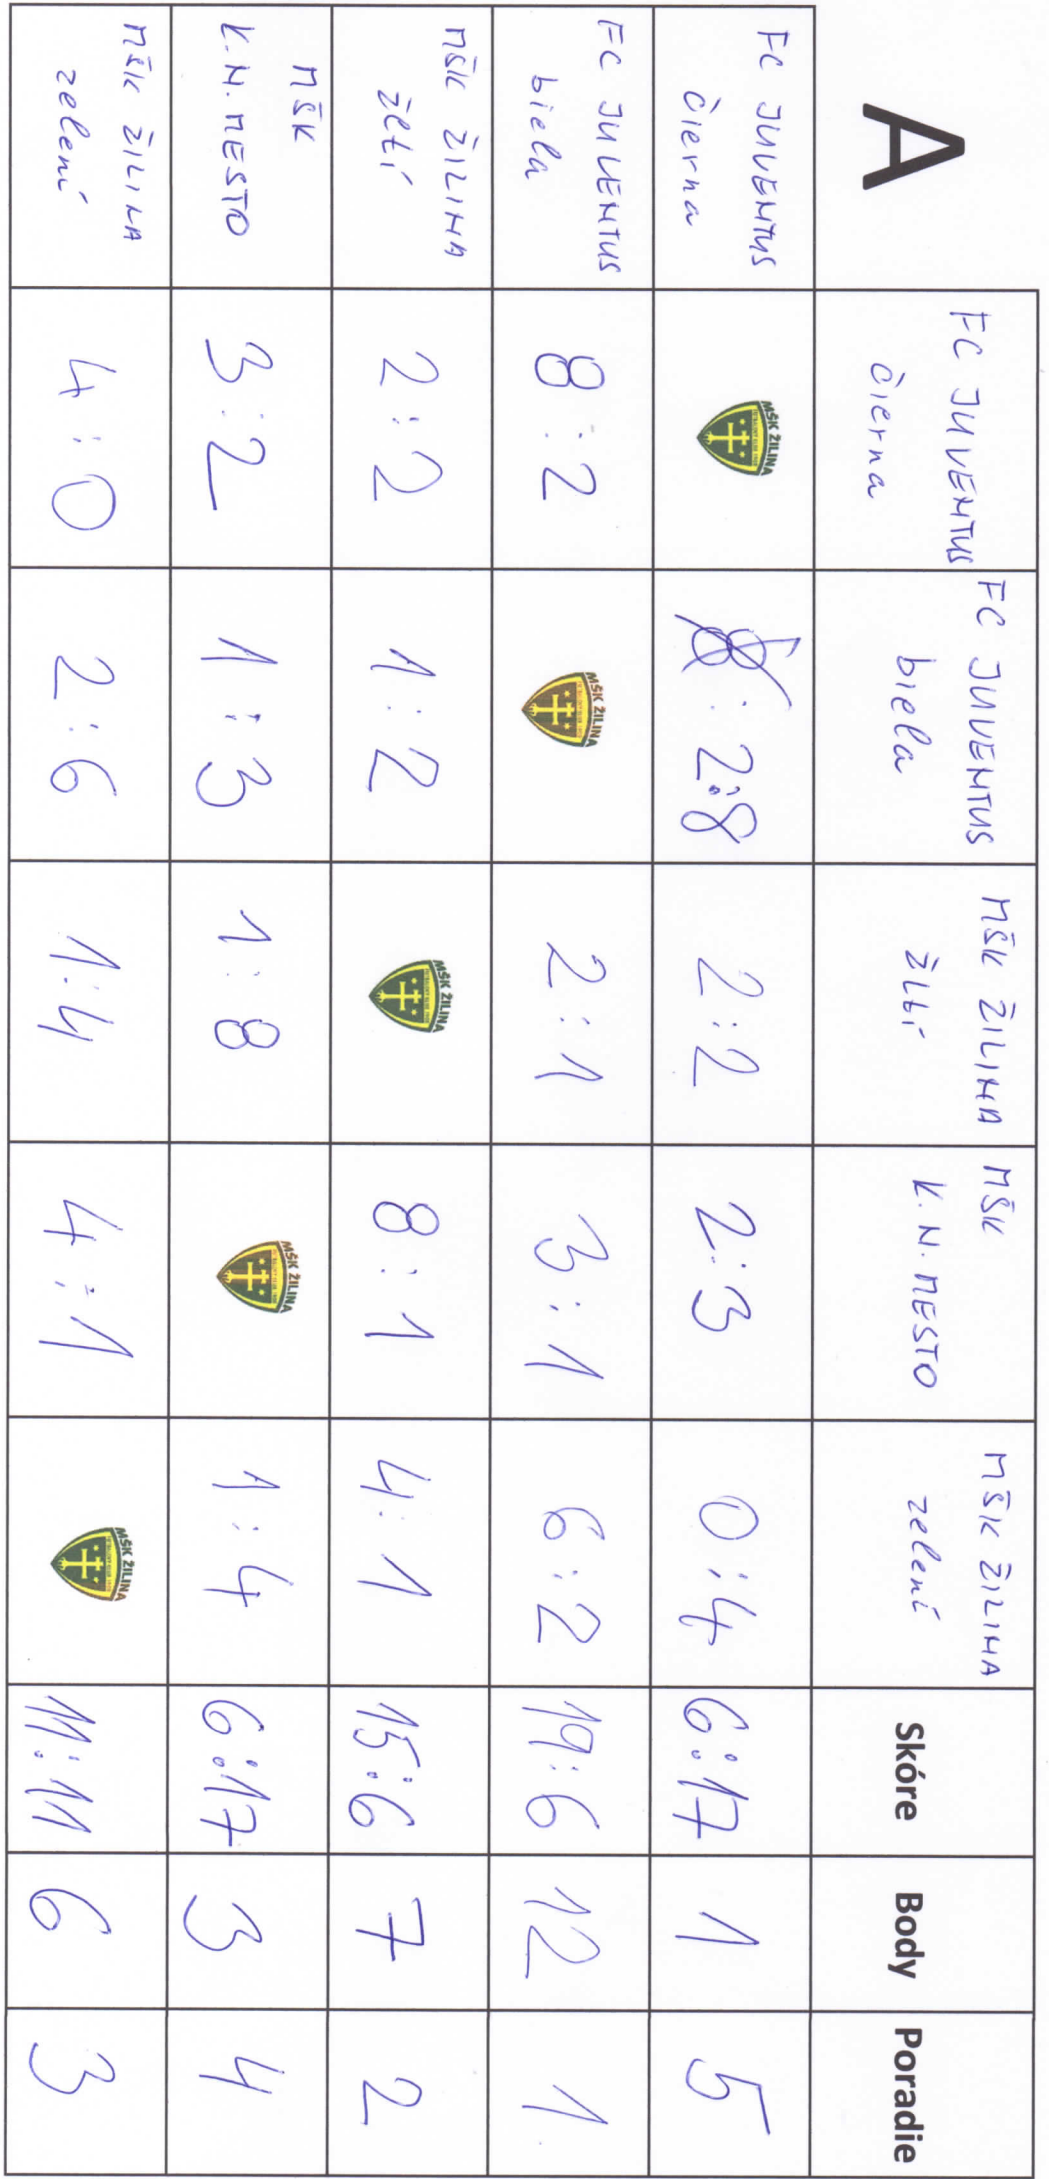 A
FC JUVENTUS
čierna
FC JUVENTUS
biela
MŠK ŽILINA
žltí
MŠK
K.N. MESTO
MŠK ŽILINA
zelení
Skóre
Body
Poradie
FC JUVENTUS
čierna
MŠK ŽILINA
2:8
2:2
2:3
0:4
6:17
1
5
FC JUVENTUS
biela
8:2
MŠK ŽILINA
2:1
3:1
6:2
19:6
12
1
MŠK ŽILINA
žltí
2:2
1:2
MŠK ŽILINA
8:1
4:1
15:6
7
2
MŠK
K.N. MESTO
3:2
1:3
1:8
MŠK ŽILINA
1:4
6:17
3
4
MŠK ŽILINA
zelení
4:0
2:6
1:4
4:1
MŠK ŽILINA
11:11
6
3